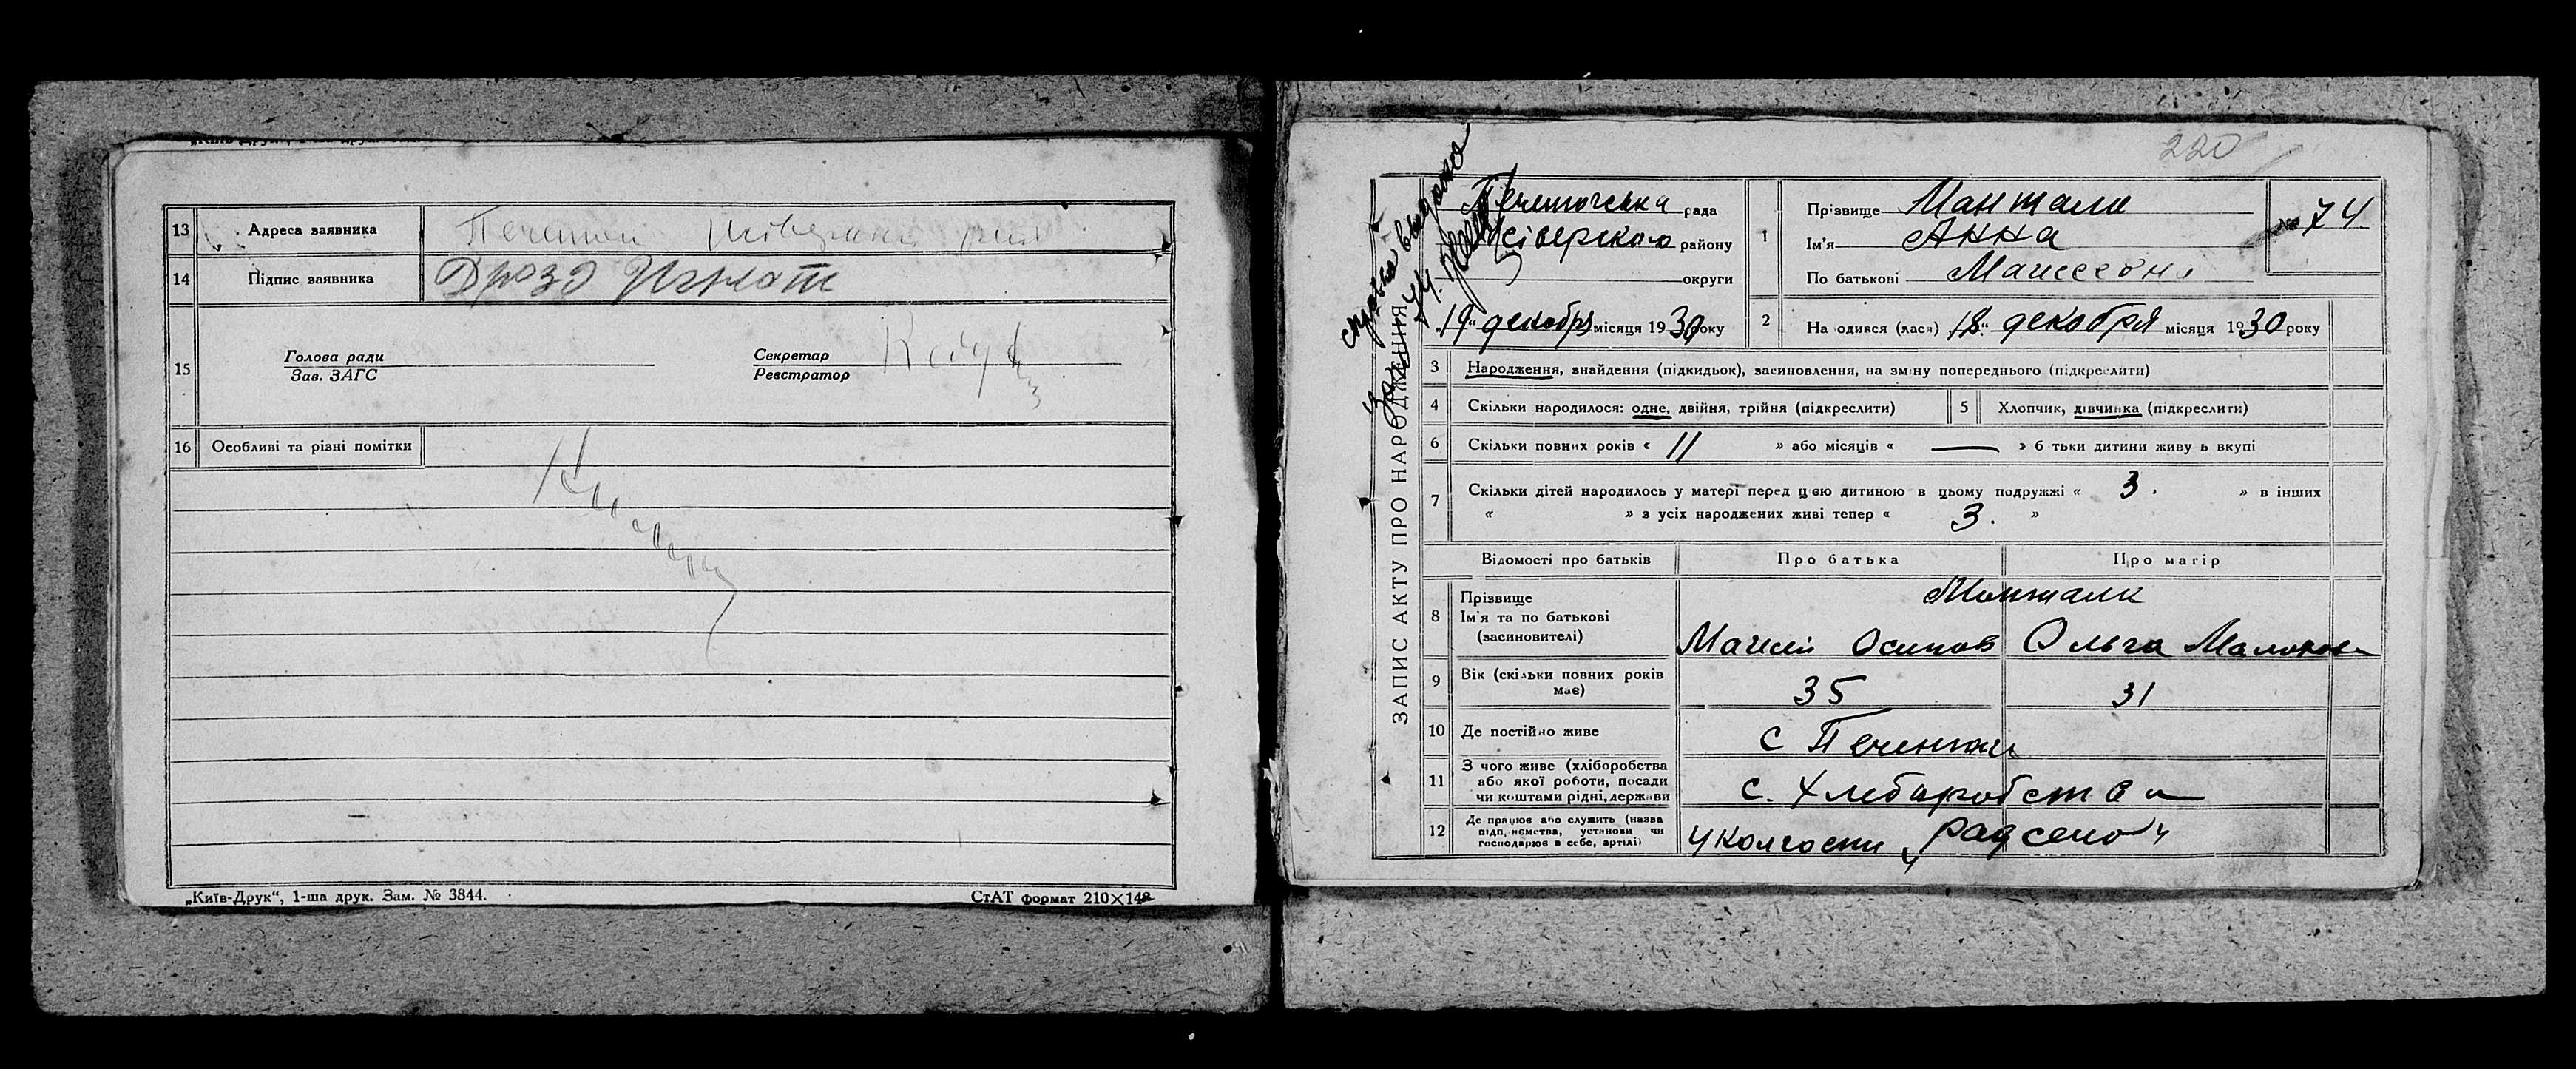 13 Адреса заявника
14 Підпис заявника Дрозд Игнат
15 Голова ради
Зав. ЗАГС
Секретар
Реєстратор
16 Особливі та різні помітки
„Київ-Друк“, 1-ша друк. Зам. № 3844.
СтАТ формат 210×148
220
ЗАПИС АКТУ ПРО НАРОДЖЕННЯ
рада
району
округи
„19“ декобря місяця 1930 року
1 Прізвище Мантали
Ім'я Анна
По батькові
№ 74.
2 На одився (лася) „18“ декобря місяця 1930 року
3 Народження, знайдення (підкидьок), засиновлення, на зміну попереднього (підкреслити)
4 Скільки народилося: одне, двійня, трійня (підкреслити)
5 Хлопчик, дівчинка (підкреслити)
6 Скільки повних років « 11 » або місяців « — » б тьки дитини живу ь вкупі
7 Скільки дітей народилось у матері перед цією дитиною в цьому подружжі « 3. » в інших
« » з усіх народжених живі тепер « 3. »
Відомості про батьків Про батька Про матір
8 Прізвище
Ім'я та по батькові
(засиновителі)
Осипов Ольга
9 Вік (скільки повних років
має)
35 31
10 Де постійно живе
с
11 З чого живе (хліборобства
або якої роботи, посади
чи коштами рідні, держави
с. Хлебаробства
12 Де працює або служить (назва
підп,иємства, установи чи
господарює в себе, артілі)
у колгоспи „Радсело“